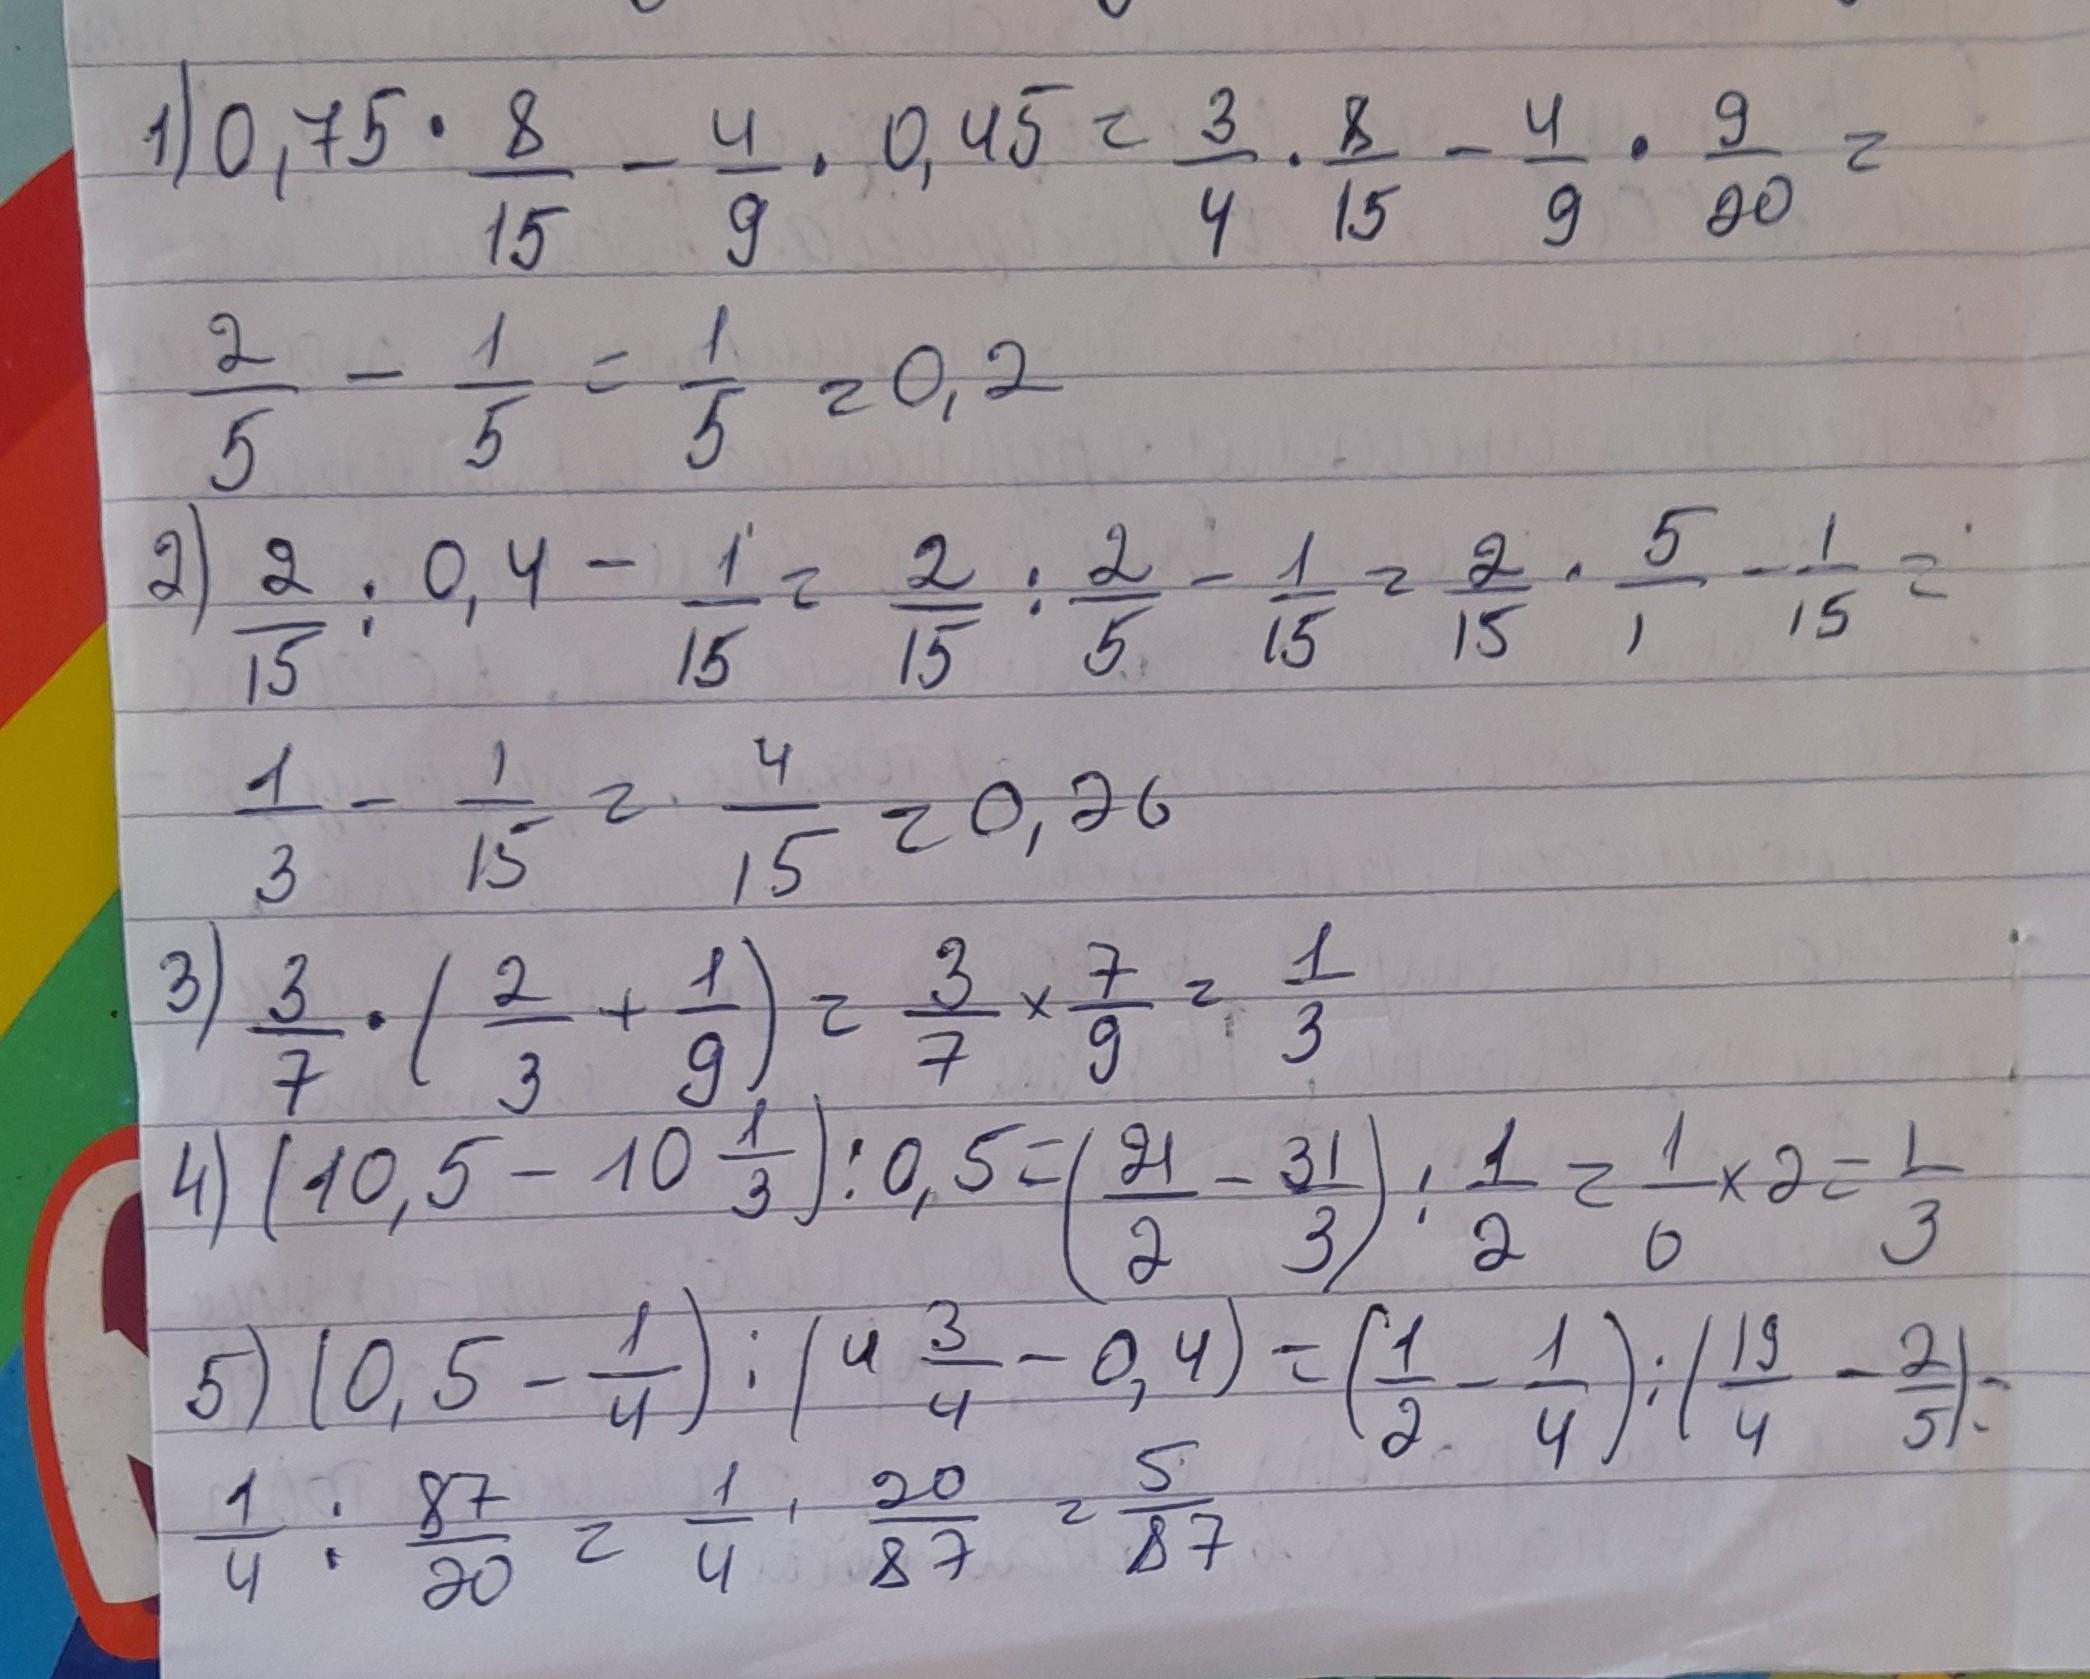 1) 0,75 · 8/15 - 4/9 · 0,45 = 3/4 · 8/15 - 4/9 · 9/20 =
2/5 - 1/5 = 1/5 = 0,2
2) 2/15 : 0,4 - 1/15 = 2/15 : 2/5 - 1/15 = 2/15 · 5/1 - 1/15 =
1/3 - 1/15 = 4/15 = 0,26
3) 3/7 · (2/3 + 1/9) = 3/7 × 7/9 = 1/3
4) (10,5 - 10 1/3) : 0,5 = (21/2 - 31/3) : 1/2 = 1/6 × 2 = 1/3
5) (0,5 - 1/4) : (4 3/4 - 0,4) = (1/2 - 1/4) : (19/4 - 2/5) =
1/4 : 87/20 = 1/4 · 20/87 = 5/87